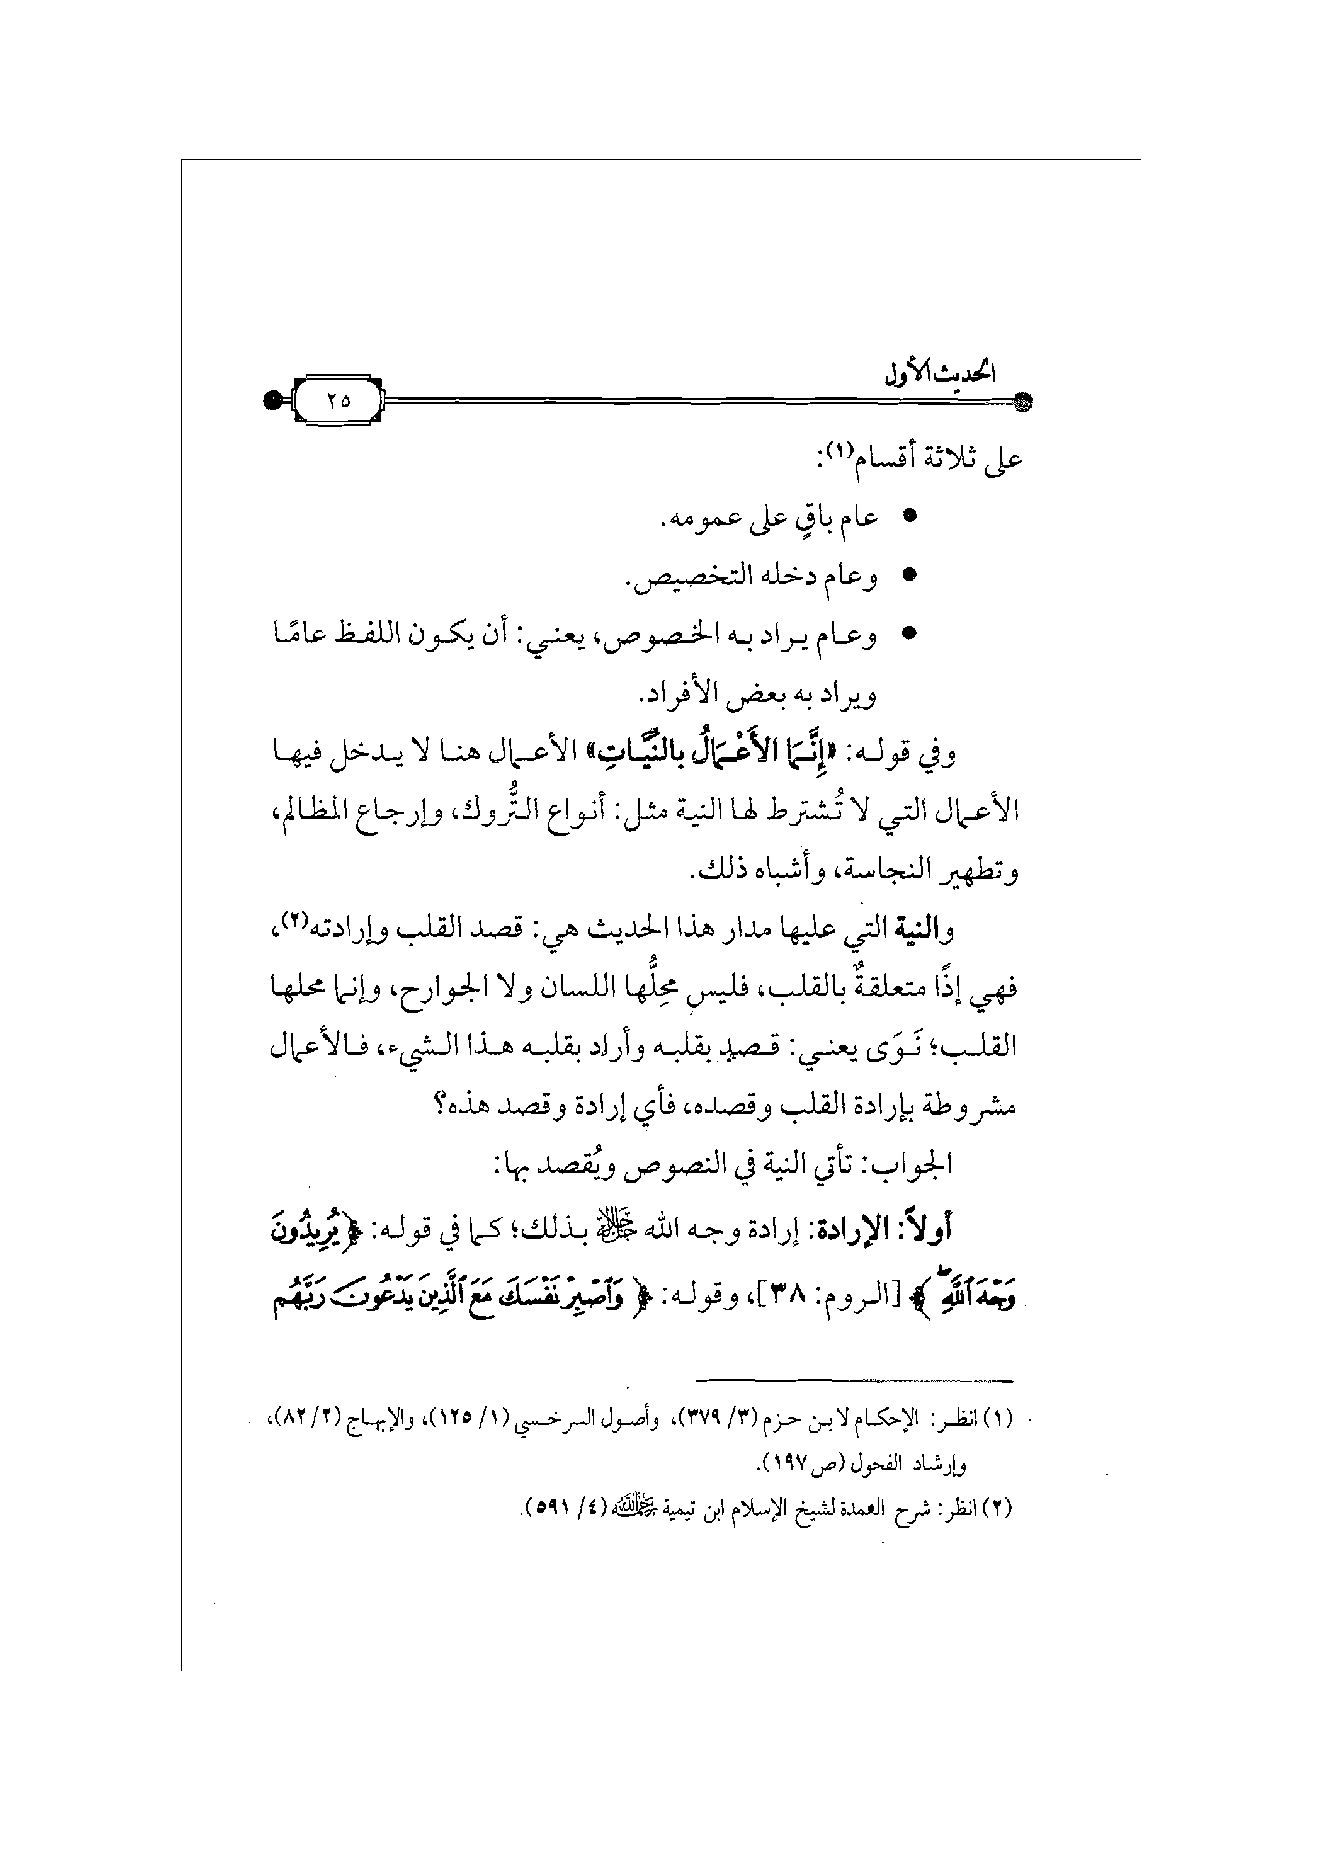 الحديث الأول
٢٥
على ثلاثة أقسام(١):
● عام باقٍ على عمومه.
● وعام دخله التخصيص.
● وعام يراد به الخصوص، يعني: أن يكون اللفظ عامًا
ويراد به بعض الأفراد.
وفي قوله: «إِنَّمَا الأَعْمَالُ بِالنِّيَّاتِ» الأعمال هنا لا يدخل فيها
الأعمال التي لا تُشترط لها النية مثل: أنواع التُّروك، وإرجاع المظالم،
وتطهير النجاسة، وأشباه ذلك.
والنية التي عليها مدار هذا الحديث هي: قصد القلب وإرادته(٢)،
فهي إذًا متعلقةٌ بالقلب، فليس محِلُّها اللسان ولا الجوارح، وإنما محلها
القلب؛ نَوَى يعني: قصد بقلبه وأراد بقلبه هذا الشيء، فالأعمال
مشروطة بإرادة القلب وقصده، فأي إرادة وقصد هذه؟
الجواب: تأتي النية في النصوص ويُقصد بها:
أولاً: الإرادة: إرادة وجه الله ﷻ بذلك؛ كما في قوله: ﴿يُرِيدُونَ
وَجْهَ ٱللَّهِ﴾ [الروم: ٣٨]، وقوله: ﴿وَٱصْبِرْ نَفْسَكَ مَعَ ٱلَّذِينَ يَدْعُونَ رَبَّهُم
(١) انظر: الإحكام لابن حزم (٣/ ٣٧٩)، وأصول السرخسي (١/ ١٢٥)، والإبهاج (٢/ ٨٢)،
وإرشاد الفحول (ص١٩٧).
(٢) انظر: شرح العمدة لشيخ الإسلام ابن تيمية رحمه الله (٤/ ٥٩١).